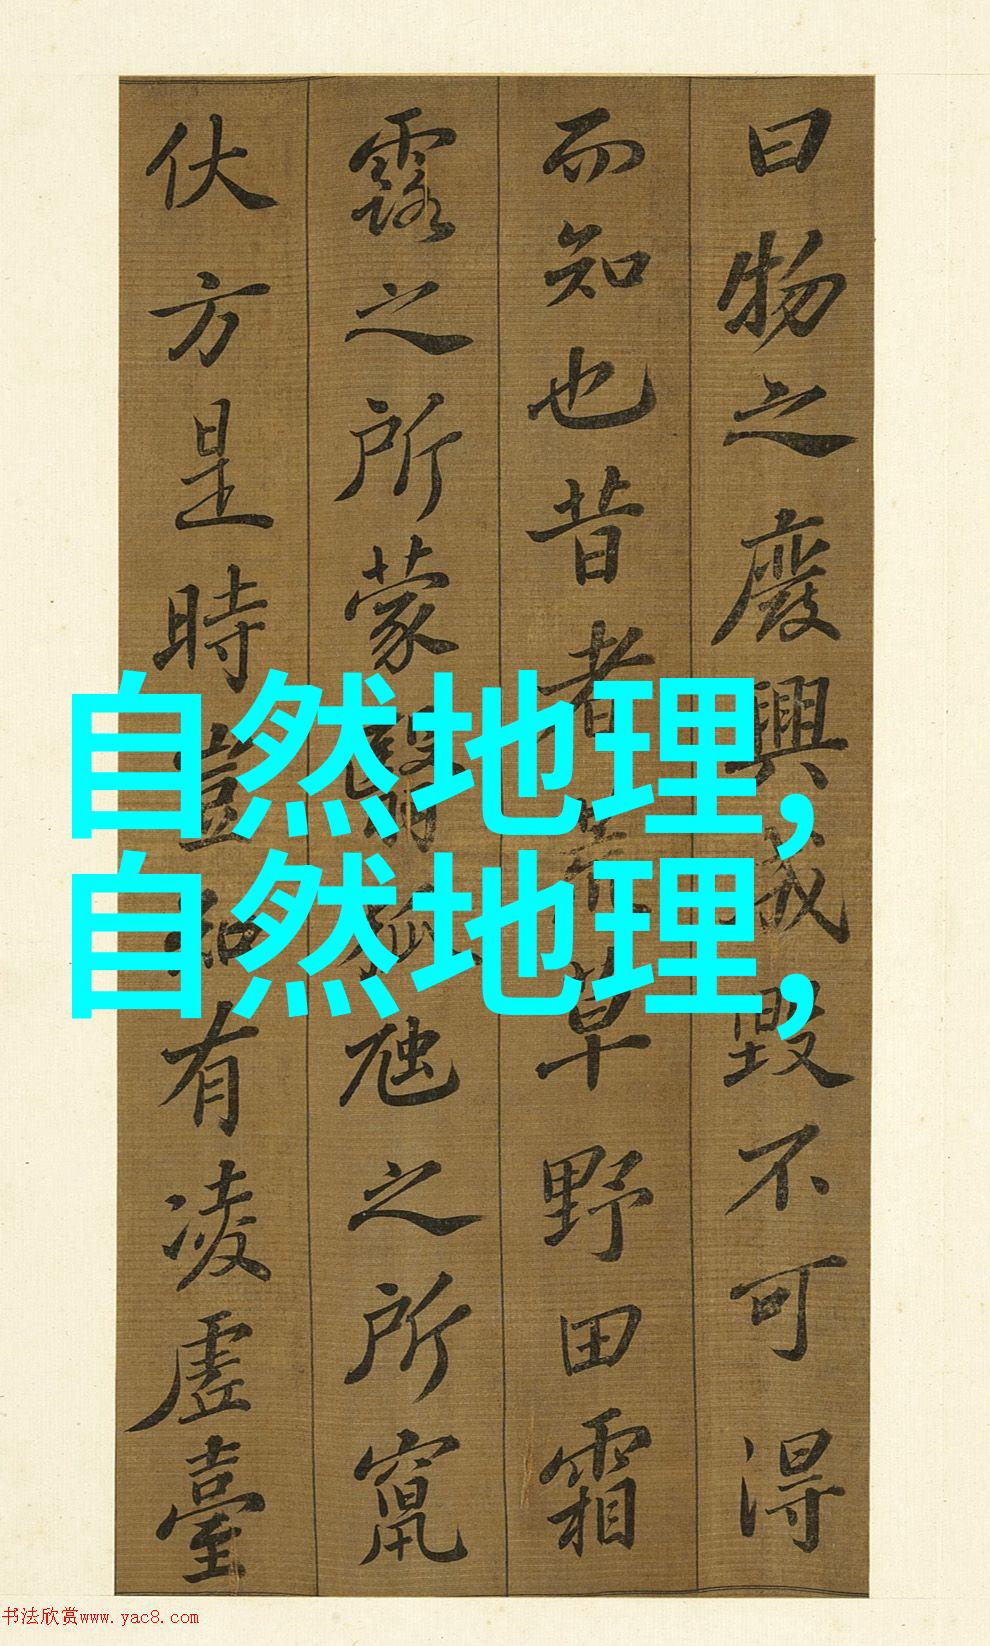 曰物之廢興成毀不可得
而知也昔者荒草野田霜
露之所蒙翳狐虺之所竄
伏方是時豈知有凌虛臺
自然地理,
自然地理,
书法欣赏www.yac8.com